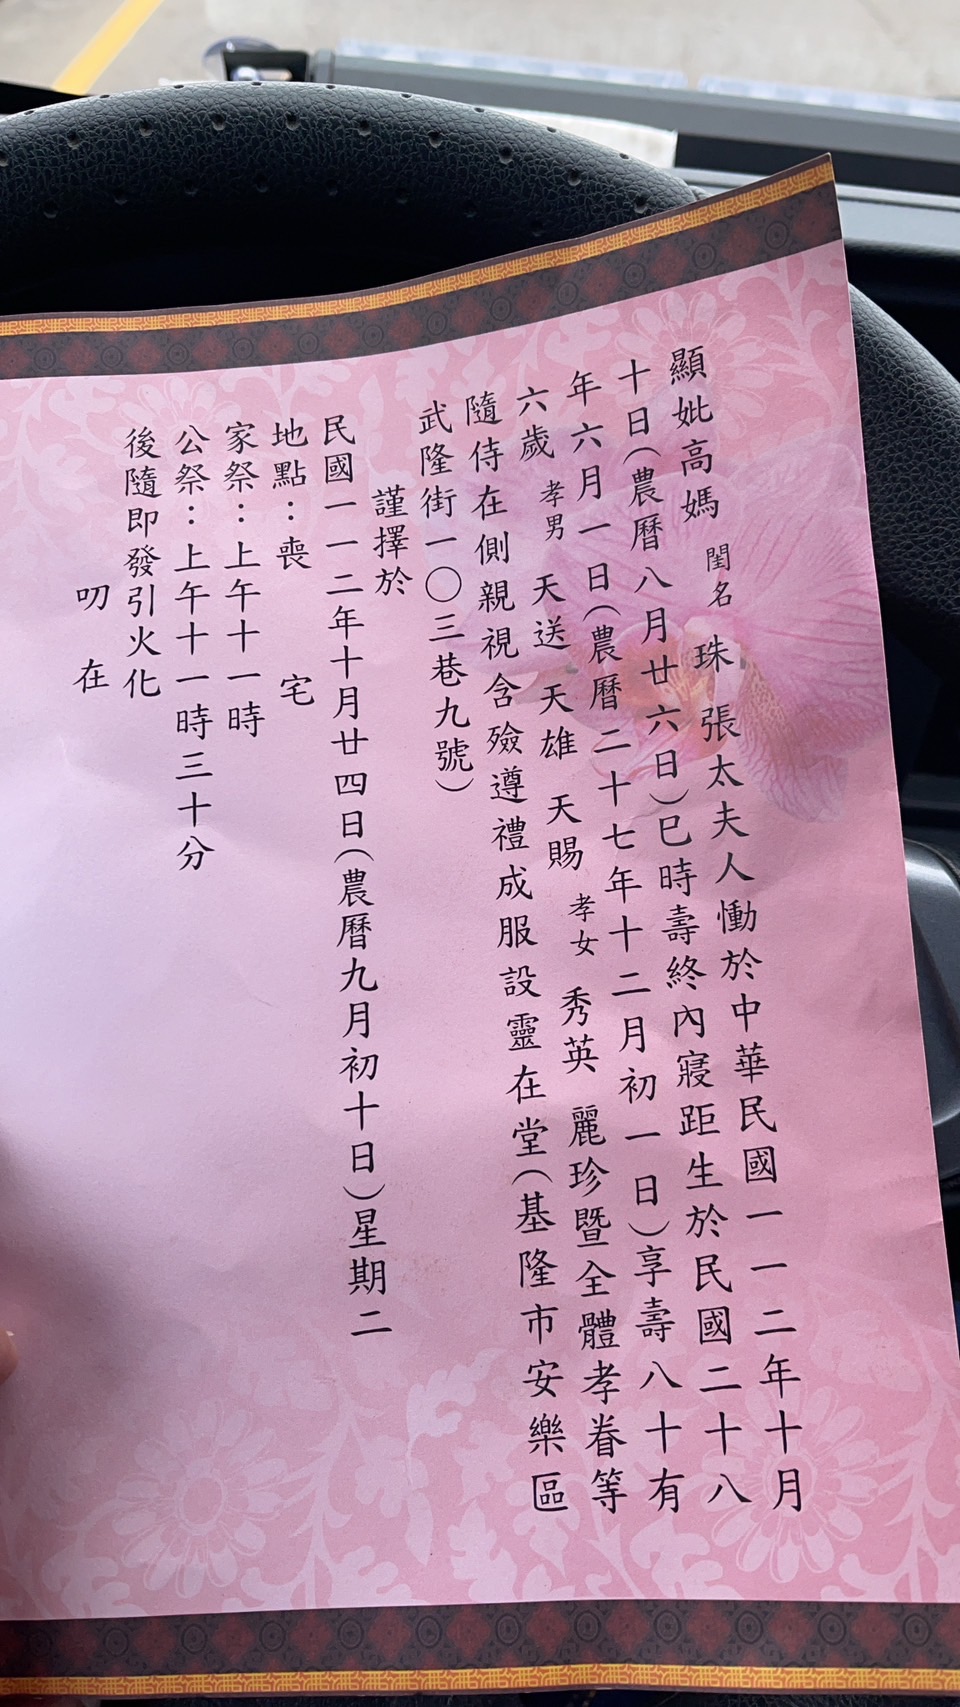 顯妣高媽閨名珠張太夫人慟於中華民國一一二年十月
十日(農曆八月廿六日)巳時壽終內寢距生於民國二十八
年六月一日(農曆二十七年十二月初一日)享壽八十有
六歲孝男天送 天雄 天賜孝女秀英 麗珍暨全體孝眷等
隨侍在側親視含殮遵禮成服設靈在堂(基隆市安樂區
武隆街一〇三巷九號)
謹擇於
民國一一二年十月廿四日(農曆九月初十日)星期二
地點:喪 宅
家祭:上午十一時
公祭:上午十一時三十分
後隨即發引火化
叨 在